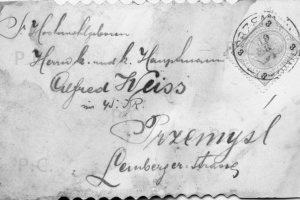 Sr Hochwohlgeboren
Herrn k. und k. Hauptmann
Alfred Weiss
in
Przemyśl
Lemberger-strasse